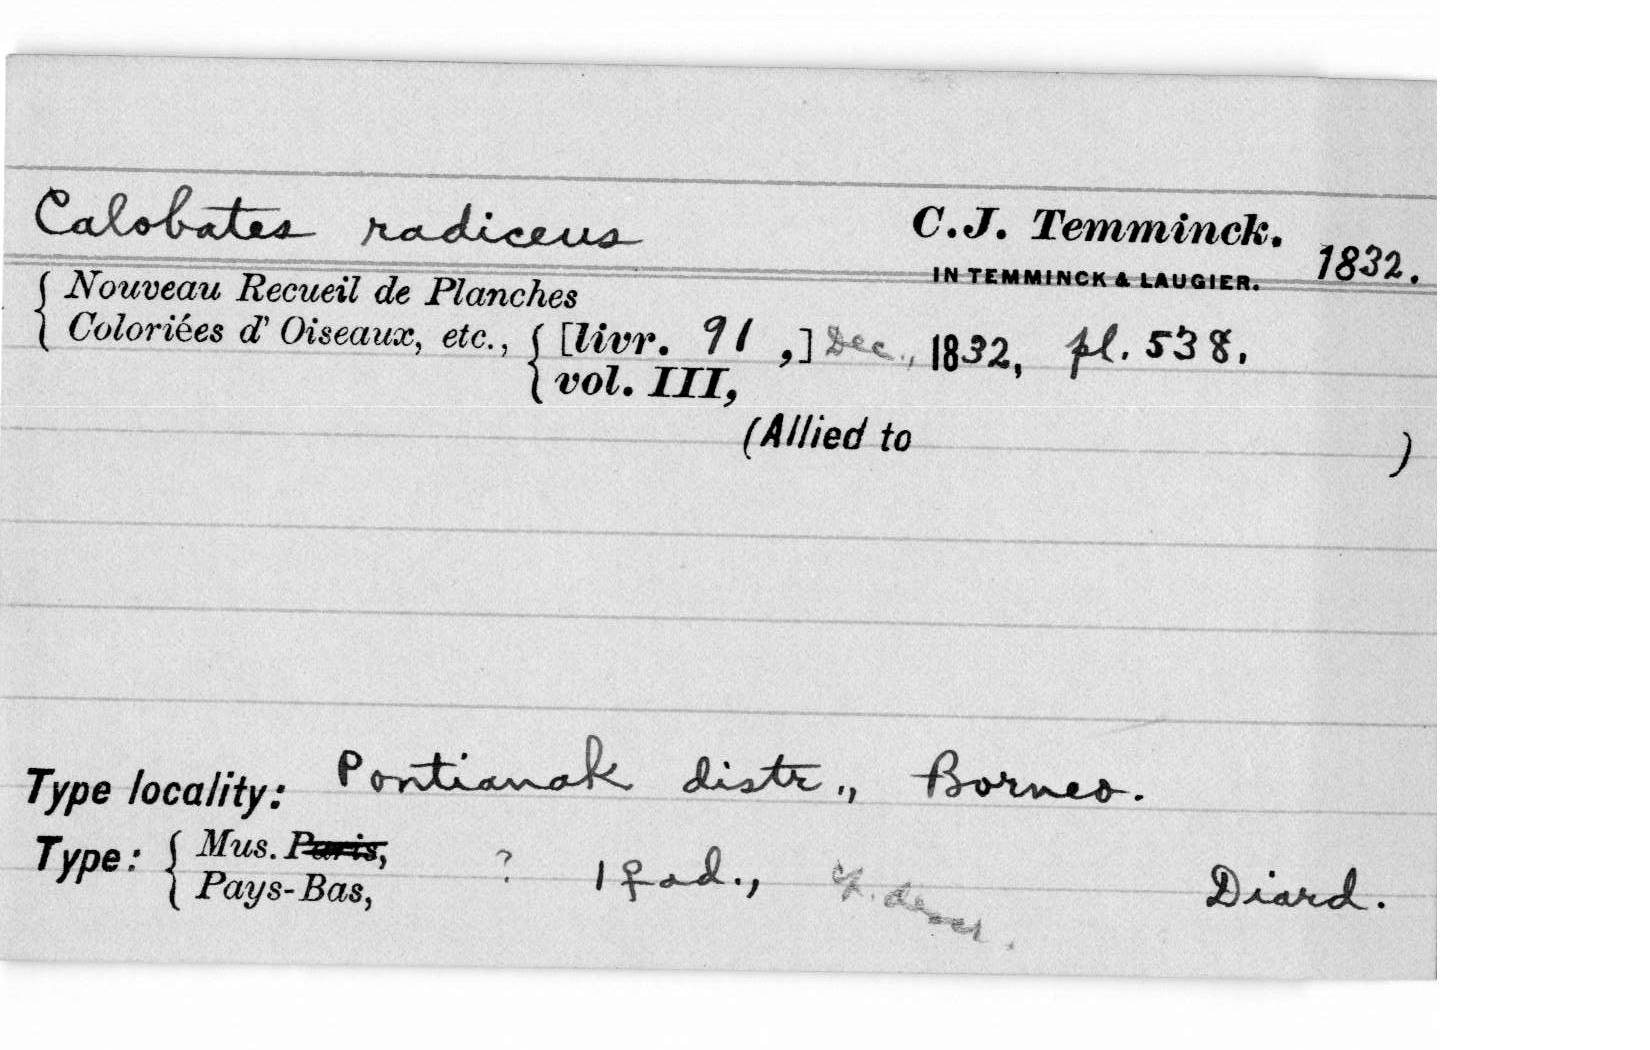 Calobates radiceus C.J. Temminck. 1832.
IN TEMMINCK & LAUGIER.
Nouveau Recueil de Planches
Coloriées d' Oiseaux, etc., [livr. 91 ,] Dec., 1832, pl. 538.
vol. III,
(Allied to )
Type locality: Pontianak distr., Borneo.
Type: Mus. Paris, ? 1 ♀ ad., Diard.
Pays-Bas,